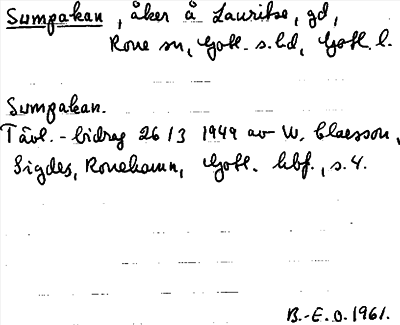 Sumpakan, åker å Lauritse, gd,
Rone sn, Gotl. s. hd, Gotl. l.
Sumpakan.
Tävl.-bidrag 26/3 1949 av W. Claesson,
Sigdes, Ronehamn, Gotl. hbf., s. 4.
B.-E. O. 1961.